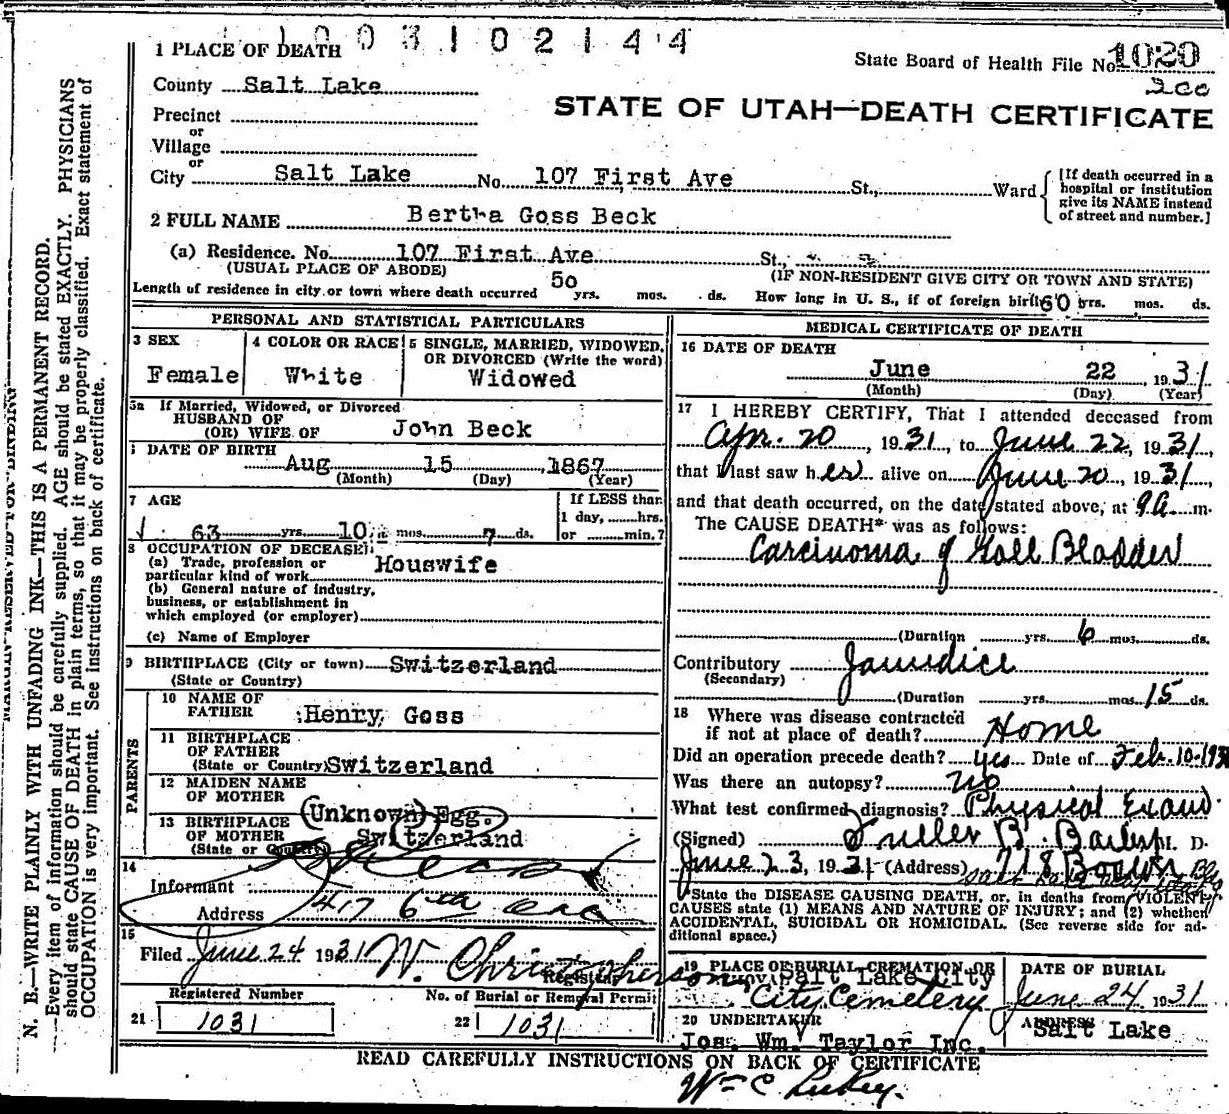 1003102144
1 PLACE OF DEATH
State Board of Health File No. 1020
200
County Salt Lake
STATE OF UTAH—DEATH CERTIFICATE
Precinct
or
Village
or
City Salt Lake No. 107 First Ave St., Ward
[If death occurred in a
hospital or institution
give its NAME instead
of street and number.]
2 FULL NAME Bertha Goss Beck
(a) Residence. No. 107 First Ave St.,
(USUAL PLACE OF ABODE) (IF NON-RESIDENT GIVE CITY OR TOWN AND STATE)
Length of residence in city or town where death occurred 50 yrs. mos. ds. How long in U. S., if of foreign birth 60 yrs. mos. ds.
PERSONAL AND STATISTICAL PARTICULARS
3 SEX
Female
4 COLOR OR RACE
White
5 SINGLE, MARRIED, WIDOWED,
OR DIVORCED (Write the word)
Widowed
5a If Married, Widowed, or Divorced
HUSBAND OF
(OR) WIFE OF John Beck
DATE OF BIRTH
Aug 15, 1867
(Month) (Day) (Year)
7 AGE
63 yrs. 10 mos. 7 ds.
If LESS than
1 day, hrs.
or min.?
8 OCCUPATION OF DECEASED
(a) Trade, profession or
particular kind of work Houswife
(b) General nature of industry,
business, or establishment in
which employed (or employer)
(c) Name of Employer
9 BIRTHPLACE (City or town) Switzerland
(State or Country)
PARENTS
10 NAME OF
FATHER Henry Goss
11 BIRTHPLACE
OF FATHER
(State or Country) Switzerland
12 MAIDEN NAME
OF MOTHER
(Unknown) Egg.
13 BIRTHPLACE
OF MOTHER Switzerland
(State or Country)
14
Informant
Address 417 6th ave
15
Filed June 24 1931 W. Christopherson
Registrar
Registered Number
21 1031
No. of Burial or Removal Permit
22 1031
MEDICAL CERTIFICATE OF DEATH
16 DATE OF DEATH
June 22, 1931
(Month) (Day) (Year)
17 I HEREBY CERTIFY, That I attended deceased from
Apr. 20, 1931, to June 22, 1931,
that I last saw her alive on June 20, 1931,
and that death occurred, on the date stated above, at 9 a m.
The CAUSE DEATH* was as follows:
Carcinoma of Gall Bladder
(Duration yrs. 6 mos. ds.
Contributory Jaundice
(Secondary)
(Duration yrs. mos. 15 ds.
18 Where was disease contracted
if not at place of death? Home
Did an operation precede death? yes Date of Feb. 10-193
Was there an autopsy? no
What test confirmed diagnosis? Physical Exam.
(Signed) Fuller B. Bailey M. D.
June 23, 1931 (Address) 718 Boston Bldg
Salt Lake City
*State the DISEASE CAUSING DEATH, or, in deaths from VIOLENT
CAUSES state (1) MEANS AND NATURE OF INJURY; and (2) whether
ACCIDENTAL, SUICIDAL OR HOMICIDAL. (See reverse side for ad-
ditional space.)
19 PLACE OF BURIAL, CREMATION OR
REMOVAL Salt Lake City
City Cemetery
DATE OF BURIAL
June 24 1931
20 UNDERTAKER
Jos. Wm. Taylor Inc.
ADDRESS
Salt Lake
READ CAREFULLY INSTRUCTIONS ON BACK OF CERTIFICATE
Wm C
MARGIN RESERVED FOR BINDING
N. B.—WRITE PLAINLY WITH UNFADING INK—THIS IS A PERMANENT RECORD.
—Every item of information should be carefully supplied. AGE should be stated EXACTLY. PHYSICIANS
should state CAUSE OF DEATH in plain terms, so that it may be properly classified. Exact statement of
OCCUPATION is very important. See instructions on back of certificate.